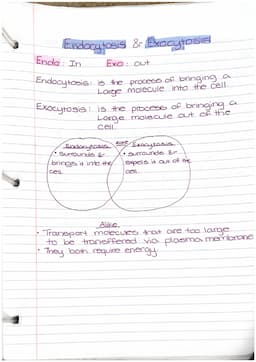 Endocytosis & Exocytosis
Endo: In Exo: out
Endocytosis: is the process of bringing a
Large molecule into the cell
Exocytosis: is the process of bringing a
Large molecule out of the
cell
Endocytosis
• surrounds &
brings it into the
cell
Exocytosis
• surrounds &
expels it out of the
cell
Alike
• Transport molecules that are too large
to be transferred via plasma membrane
• They both require energy.